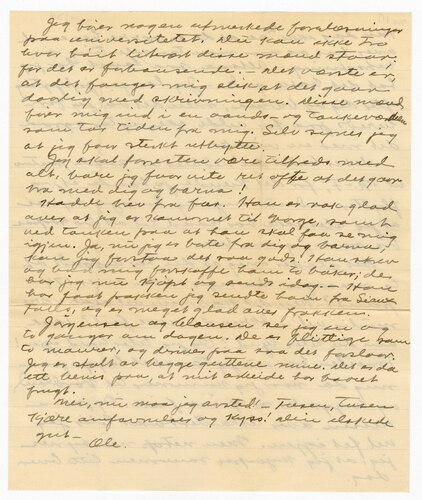 Jeg hører nogen udmerkede forelæsninger
paa universitetet. Du kan ikke tro
hvor høit literært disse mænd staar;
for det er forbausende. – Det værste er,
at det fanger mig slek at det gaar
daarlig med skrivningen. Disse mænd
fører mig ind i en aands- og tankeverden
som tar tiden fra mig. Selv synes jeg
at jeg faar sterkt utbytte.
Jeg skal forresten være tilfreds med
alt, bare jeg faar vite ret ofte at det gaar
bra med dig og barna!
Hadde brev fra far. Han er nok glad
over at jeg er kommet til Norge, samt
ved tanken paa at han skal faa se mig
igjen. Ja, nu jeg er borte fra dig og barna
kan jeg forstaa det saa godt. Han skrev
og bad mig forskaffe ham to bøker; de
har jeg nu kjøpt og sendt idag. – Han
har faat frakken jeg sendte ham fra Sioux
Falls, og er meget glad over frakken.
Jørgensen og Clausen ser jeg en og
to ganger om dagen. De er flittige som
to maurer, og driver paa saa det forslaar.
Jeg er stolt av begge guttene mine, det er da
ett bevis paa, at mit arbeide har baaret
frugt.
Nei, nu maa jeg avsted! – Tusen, tusen
kjære omfavnelser og kyss. Din elskede
gut –
Ole.